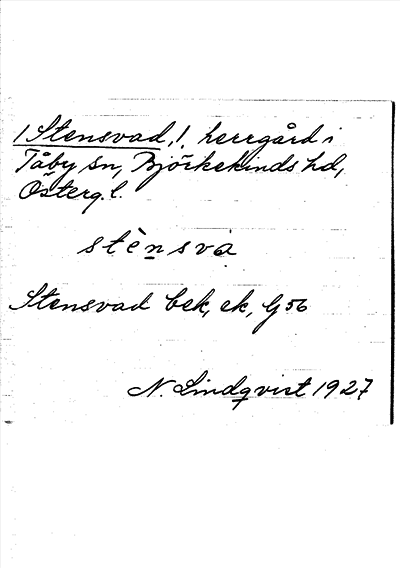 /Stensvad,/, herrgård i
Tåby sn, Björkekinds hd,
Österg.l.
stènsva
Stensvad bek, ek, G56
N. Lindqvist 1927